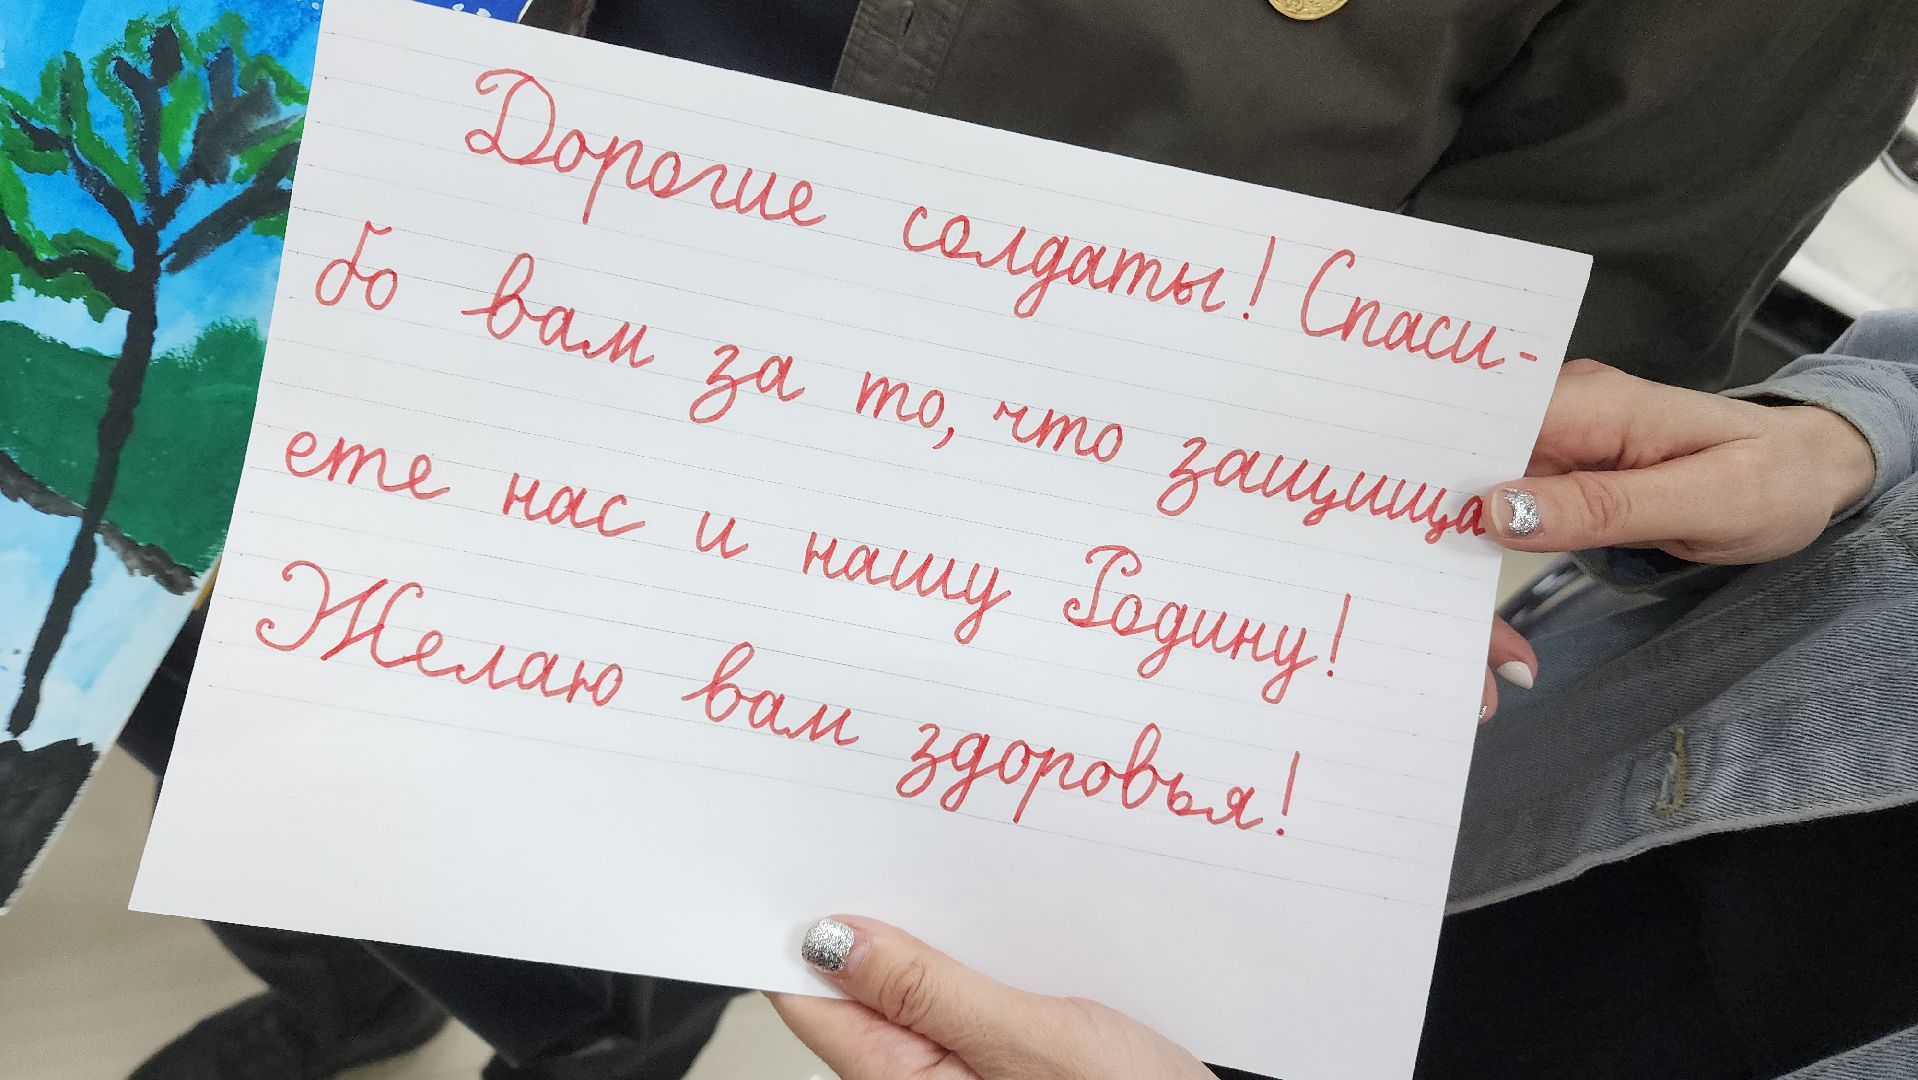 Дорогие солдаты! Спаси-
бо вам за то, что защища
ете нас и нашу Родину!
Желаю вам здоровья!